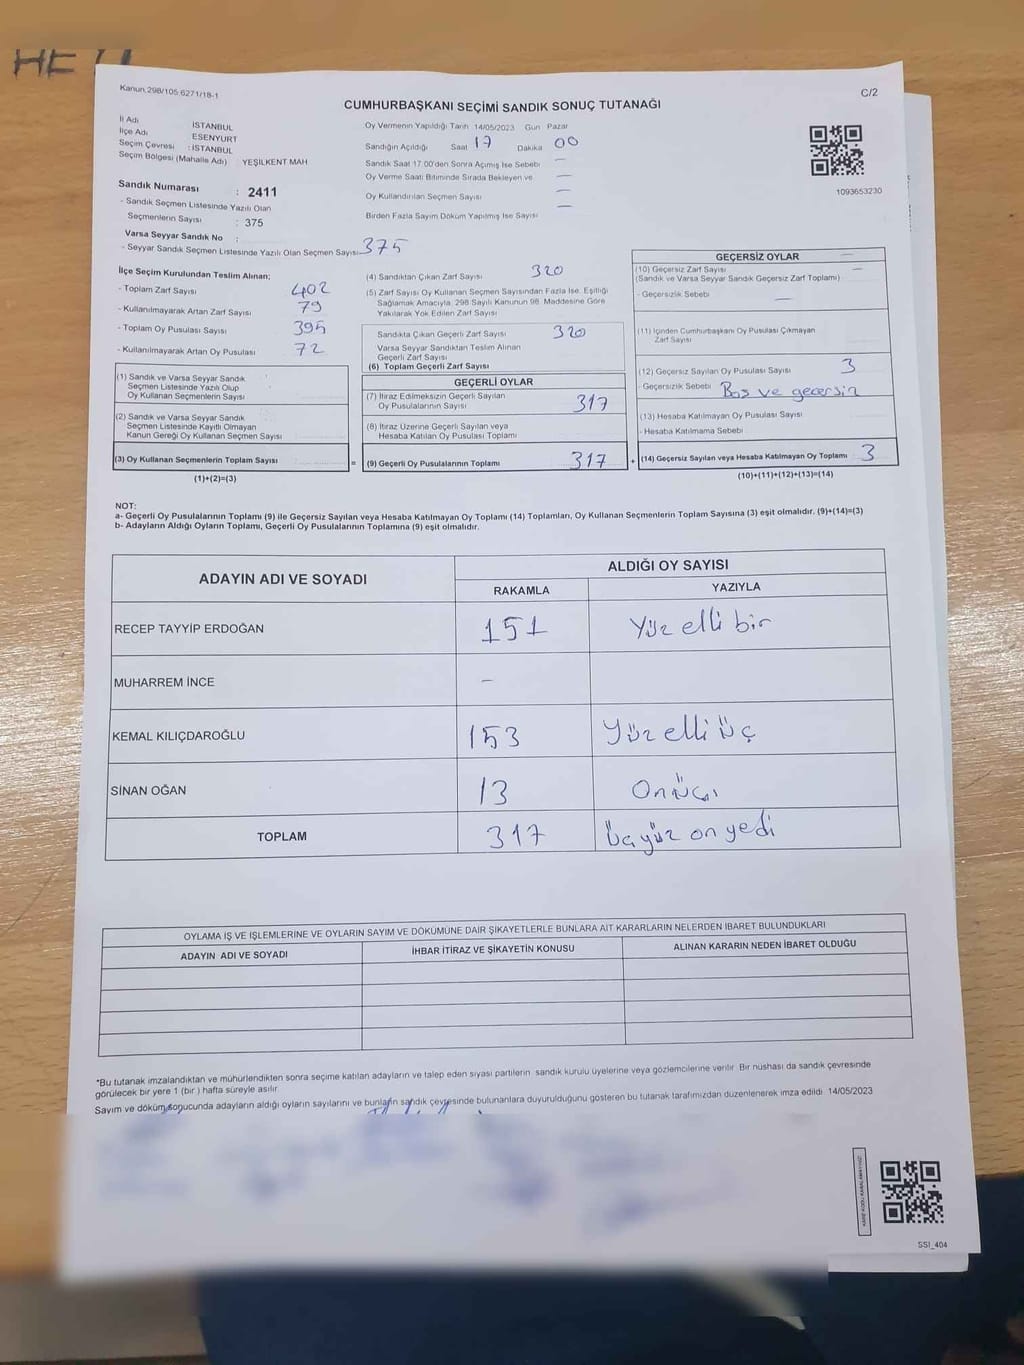 Kanun.298/105.6271/18-1
C/2
CUMHURBAŞKANI SEÇİMİ SANDIK SONUÇ TUTANAĞI
İl Adı İSTANBUL
İlçe Adı ESENYURT
Seçim Çevresi : İSTANBUL
Seçim Bölgesi (Mahalle Adı) YEŞİLKENT MAH
Sandık Numarası : 2411
- Sandık Seçmen Listesinde Yazılı Olan
Seçmenlerin Sayısı : 375
Varsa Seyyar Sandık No :
- Seyyar Sandık Seçmen Listesinde Yazılı Olan Seçmen Sayısı 375
Oy Vermenin Yapıldığı Tarih 14/05/2023 Gün Pazar
Sandığın Açıldığı Saat 17 Dakika 00
Sandık Saat 17.00'den Sonra Açımış İse Sebebi —
Oy Verme Saati Bitiminde Sırada Bekleyen ve —
Oy Kullandırılan Seçmen Sayısı —
Birden Fazla Sayım Döküm Yapılmış İse Sayısı —
1093653230
İlçe Seçim Kurulundan Teslim Alınan;
- Toplam Zarf Sayısı 402
- Kullanılmayarak Artan Zarf Sayısı 79
- Toplam Oy Pusulası Sayısı 395
- Kullanılmayarak Artan Oy Pusulası 72
(1) Sandık ve Varsa Seyyar Sandık
Seçmen Listesinde Yazılı Olup
Oy Kullanan Seçmenlerin Sayısı
(2) Sandık ve Varsa Seyyar Sandık
Seçmen Listesinde Kayıtlı Olmayan
Kanun Gereği Oy Kullanan Seçmen Sayısı
(3) Oy Kullanan Seçmenlerin Toplam Sayısı =
(1)+(2)=(3)
(4) Sandıktan Çıkan Zarf Sayısı 320
(5) Zarf Sayısı Oy Kullanan Seçmen Sayısından Fazla İse, Eşitliği
Sağlamak Amacıyla, 298 Sayılı Kanunun 98. Maddesine Göre
Yakılarak Yok Edilen Zarf Sayısı
Sandıkta Çıkan Geçerli Zarf Sayısı 320
Varsa Seyyar Sandıktan Teslim Alınan
Geçerli Zarf Sayısı
(6) Toplam Geçerli Zarf Sayısı
GEÇERLİ OYLAR
(7) İtiraz Edilmeksizin Geçerli Sayılan
Oy Pusulalarının Sayısı 317
(8) İtiraz Üzerine Geçerli Sayılan veya
Hesaba Katılan Oy Pusulası Toplamı
(9) Geçerli Oy Pusulalarının Toplamı 317 +
GEÇERSİZ OYLAR
(10) Geçersiz Zarf Sayısı —
(Sandık ve Varsa Seyyar Sandık Geçersiz Zarf Toplamı)
- Geçersizlik Sebebi —
(11) İçinden Cumhurbaşkanı Oy Pusulası Çıkmayan
Zarf Sayısı
(12) Geçersiz Sayılan Oy Pusulası Sayısı 3
- Geçersizlik Sebebi Boş ve geçersiz
(13) Hesaba Katılmayan Oy Pusulası Sayısı
- Hesaba Katılmama Sebebi
(14) Geçersiz Sayılan veya Hesaba Katılmayan Oy Toplamı 3
(10)+(11)+(12)+(13)=(14)
NOT:
a- Geçerli Oy Pusulalarının Toplamı (9) ile Geçersiz Sayılan veya Hesaba Katılmayan Oy Toplamı (14) Toplamları, Oy Kullanan Seçmenlerin Toplam Sayısına (3) eşit olmalıdır. (9)+(14)=(3)
b- Adayların Aldığı Oyların Toplamı, Geçerli Oy Pusulalarının Toplamına (9) eşit olmalıdır.
ADAYIN ADI VE SOYADI ALDIĞI OY SAYISI
RAKAMLA YAZIYLA
RECEP TAYYİP ERDOĞAN 151 Yüz elli bir
MUHARREM İNCE –
KEMAL KILIÇDAROĞLU 153 Yüz elli üç
SİNAN OĞAN 13 Onüç
TOPLAM 317 üçyüz on yedi
OYLAMA İŞ VE İŞLEMLERİNE VE OYLARIN SAYIM VE DÖKÜMÜNE DAİR ŞİKAYETLERLE BUNLARA AİT KARARLARIN NELERDEN İBARET BULUNDUKLARI
ADAYIN ADI VE SOYADI İHBAR İTİRAZ VE ŞİKAYETİN KONUSU ALINAN KARARIN NEDEN İBARET OLDUĞU
*Bu tutanak imzalandıktan ve mühürlendikten sonra seçime katılan adayların ve talep eden siyasi partilerin sandık kurulu üyelerine veya gözlemcilerine verilir. Bir nüshası da sandık çevresinde
görülecek bir yere 1 (bir) hafta süreyle asılır.
Sayım ve döküm sonucunda adayların aldığı oyların sayılarını ve bunların sandık çevresinde bulunanlara duyurulduğunu gösteren bu tutanak tarafımızdan düzenlenerek imza edildi. 14/05/2023
SSI_404